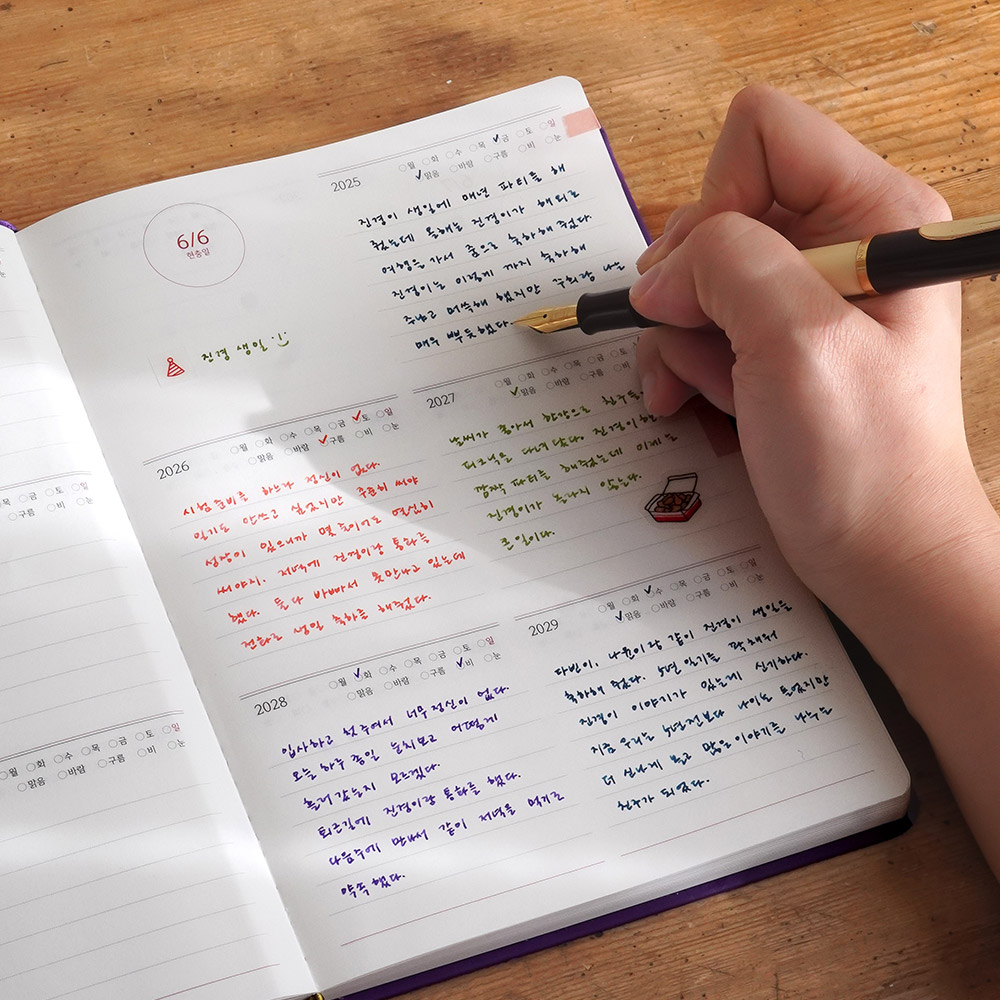 6/6
현충일
진경 생일 :)
2025
월 화 수 목 금 토 일
맑음 바람 구름 비 눈
진경이 생일에 매년 파티를 해
줬는데 올해는 진경이가 해외로
여행을 가서 줌으로 축하해 줬다.
진경이는 이렇게 까지 축하해
주냐고 머쓱해 했지만 우희랑 나는
매우 뿌듯했다.
2026
월 화 수 목 금 토 일
맑음 바람 구름 비 눈
시험 준비를 하느라 정신이 없다.
일기도 안쓰고 싶었지만 꾸준히 써야
성장이 있으니까 몇 줄이라도 열심히
써야지. 저녁에 진경이랑 통화를
했다. 둘다 바빠서 못만나고 있는데
전화로 생일 축하를 해줬다.
2027
월 화 수 목 금 토
맑음 바람 구름 비
날씨가 좋아서 한강으로 친구들
피크닉을 다녀왔다. 진경이
깜짝 파티를 해줬는데 이제는
진경이가 놀라지 않는다.
큰일이다.
2028
월 화 수 목 금 토 일
맑음 바람 구름 비 눈
입사하고 첫 주여서 너무 정신이 없다.
오늘 하루 종일 눈치보고 어떻게
흘러 갔는지 모르겠다.
퇴근길에 진경이랑 통화를 했다.
다음주에 만나서 같이 저녁을 먹기로
약속했다.
2029
월 화 수 목 금 토 일
맑음 바람 구름 비 눈
다빈이, 나윤이랑 같이 진경이 생일을
축하해 줬다. 5년 일기를 꽉 채워
진경이 이야기가 있는게 신기하다.
지금 우리는 5년전보다 나이도 들었지만
더 신나게 놀고 많은 이야기를 나누는
친구가 되었다.
목 금 토 일
구름 비 눈
월 화 수 목 금 토 일
맑음 바람 구름 비 눈